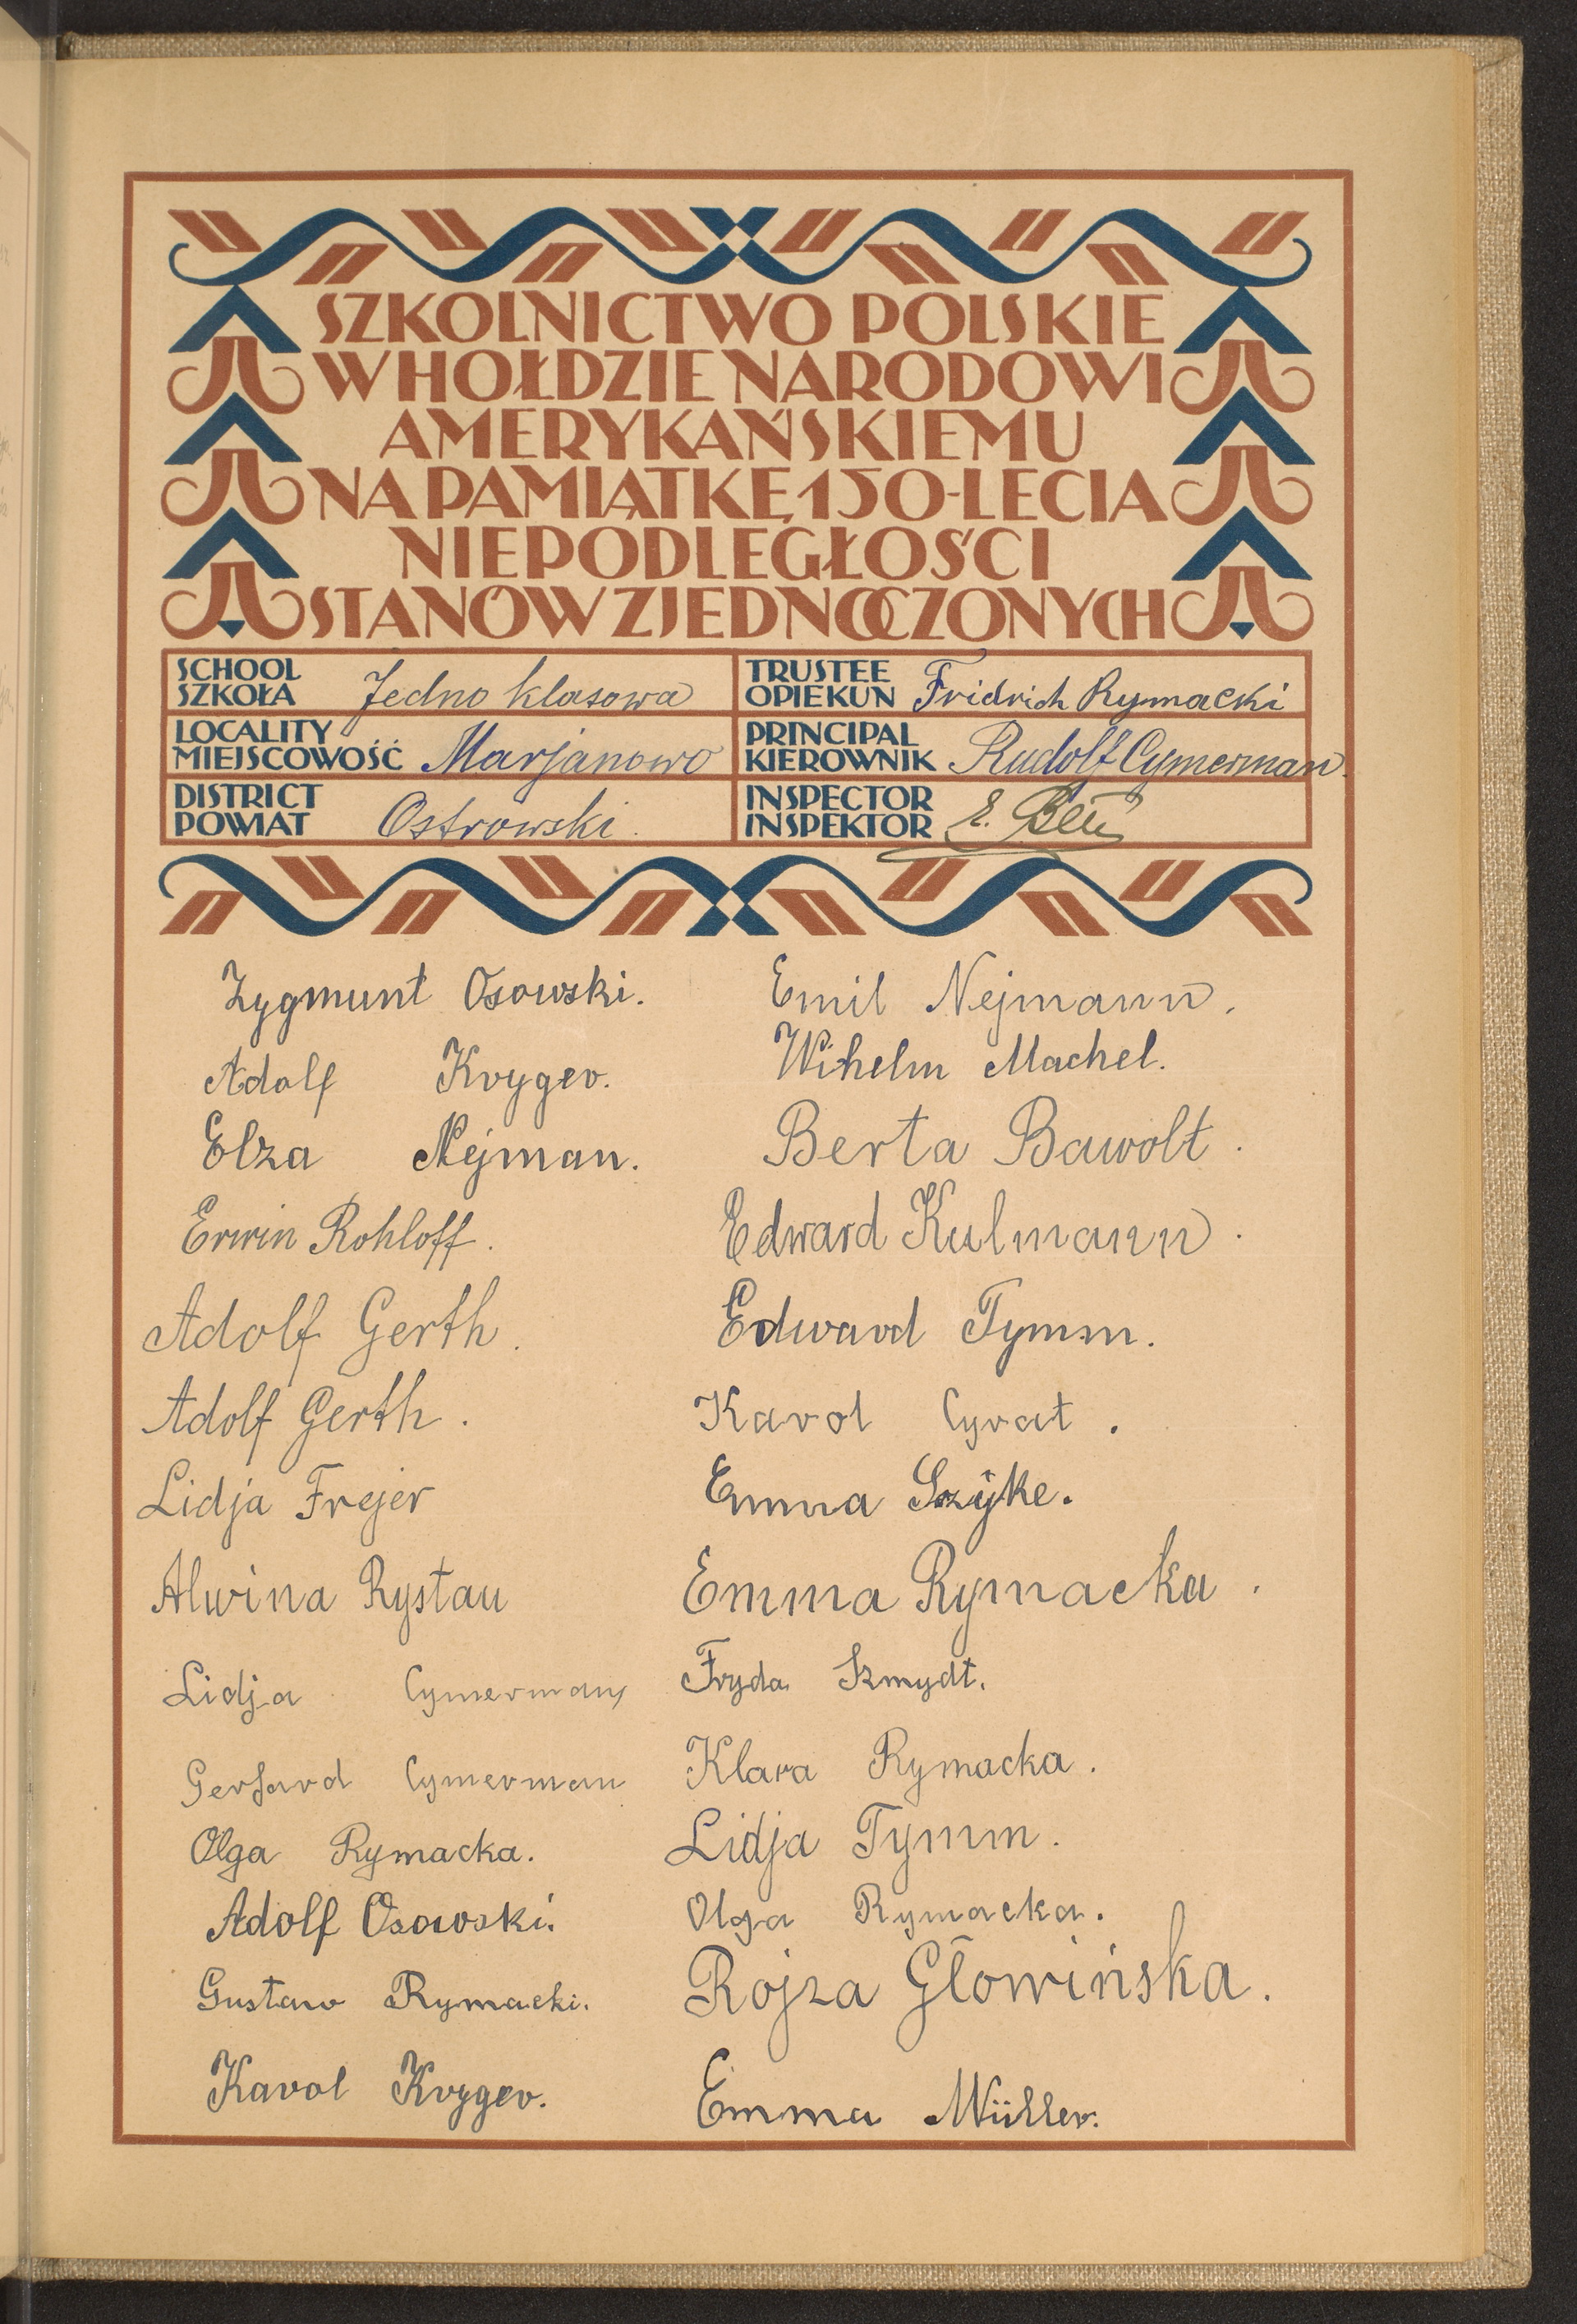 SZKOLNICTWO POLSKIE
W HOŁDZIE NARODOWI
AMERYKAŃSKIEMU
NA PAMIĄTKĘ 150-LECIA
NIEPODLEGŁOŚCI
STANÓW ZJEDNOCZONYCH
SCHOOL
SZKOŁA Jedno klasowa
TRUSTEE
OPIEKUN Fridrich Rymacki
LOCALITY
MIEJSCOWOŚĆ Marjanowo
PRINCIPAL
KIEROWNIK Rudolf Cymerman.
DISTRICT
POWIAT Ostrowski.
INSPECTOR
INSPEKTOR E.
Zygmunt Osowski.
Adolf Kryger.
Elza Nejman.
Erwin Rohloff.
Adolf Gerth.
Adolf Gerth.
Lidja Frejer
Alwina Rystau
Lidja Cymerman
Gerhard Cymerman
Olga Rymacka.
Adolf Osowski.
Gustaw Rymacki.
Karol Kryger.
Emil Nejmann.
Wihelm Machel.
Berta Bawolt.
Edward Kulmann.
Edward Tymm.
Karol Cyrat.
Emma Szyke.
Emma Rymacka.
Fryda Szmydt.
Klara Rymacka.
Lidja Tymm.
Olga Rymacka.
Rojza Głowińska.
Emma Müller.